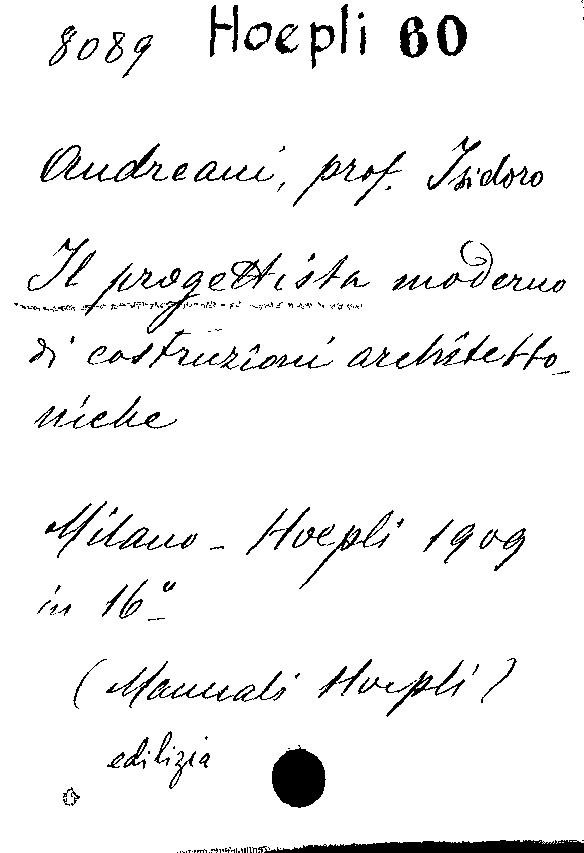 8089 Hoepli 60
Andreani, prof. Isidoro
Il progettista moderno
di costruzioni architetto_
niche
Milano - Hoepli 1909
in 16º
(Manuali Hoepli)
edilizia